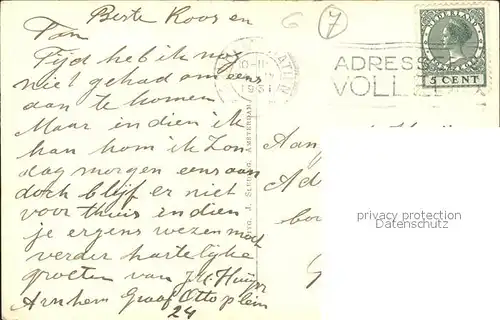 Beste Koos en
Tan
Tijd heb ik nog
niet gehad om eens
aan te komen
Maar indien ik
kan kom ik Zon
dag morgen eens aan
doch blijf er niet
voor thuis indien
je ergens wezen moet
verder hartelijke
groeten van
Arnhem Graaf Otto plein
24
6
7
10-11
1931
ADRESS
VOLL
NEDERLAND
5 CENT
J. SLEDING, AMSTERDAM
Aan
Ad
privacy protection
www.oldthing.de